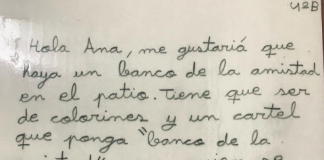 42B
Hola Ana, me gustariá que
haya un banco de la amistad
en el patio. Tiene que ser
de colorines y un cartel
que ponga "banco de la